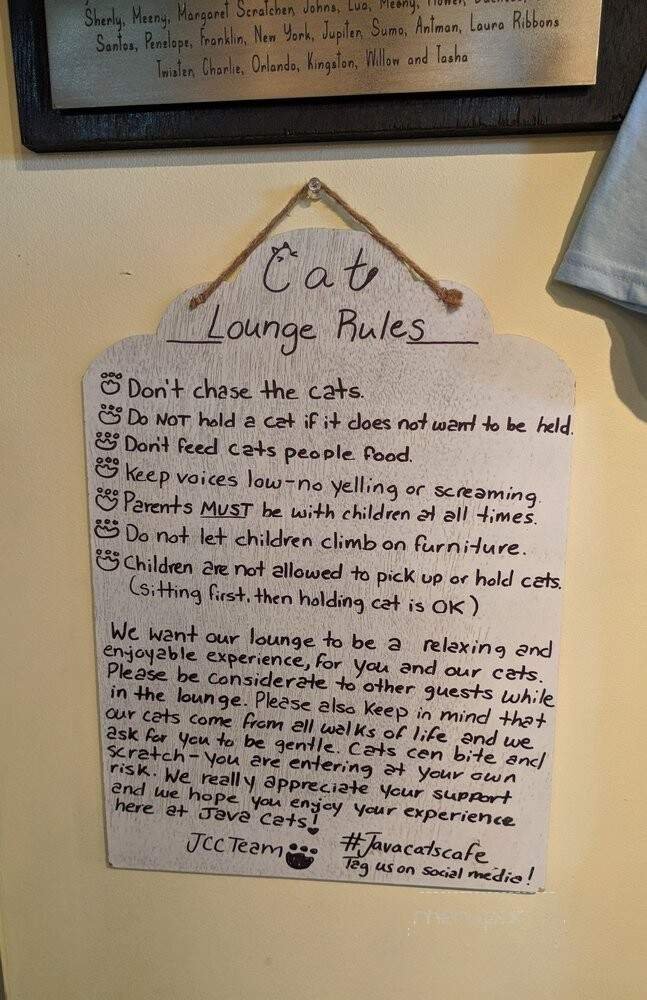 Sherly, Meeny, Margaret Scratcher, Johns, Lua,
Santos, Penelope, Franklin, New York, Jupiter, Sumo, Antman, Laura Ribbons
Twister, Charlie, Orlando, Kingston, Willow and Tasha
Cat
Lounge Rules
Don't chase the cats.
Do NOT hold a cat if it does not want to be held.
Don't feed cats people food.
Keep voices low-no yelling or screaming.
Parents MUST be with children at all times.
Do not let children climb on furniture.
Children are not allowed to pick up or hold cats.
(sitting first, then holding cat is OK)
We want our lounge to be a relaxing and
enjoyable experience, for you and our cats.
Please be considerate to other guests while
in the lounge. Please also keep in mind that
our cats come from all walks of life and we
ask for you to be gentle. Cats can bite and
scratch-you are entering at your own
risk. We really appreciate your support
and we hope you enjoy your experience
here at Java Cats!
JCC Team
#Javacatscafe
Tag us on social media!